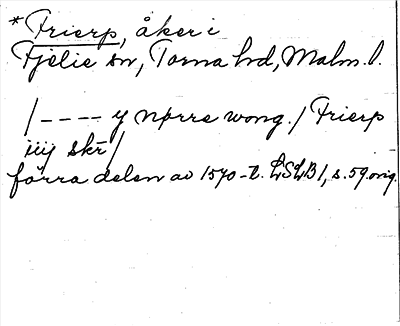 *Frierp, åker i
Fjelie sn, Torna hd, Malm. l.
/---- y nørre wong./ Frierp
iiij skr/
förra delen av 1570-t. LSLB 1, s. 59 orig.